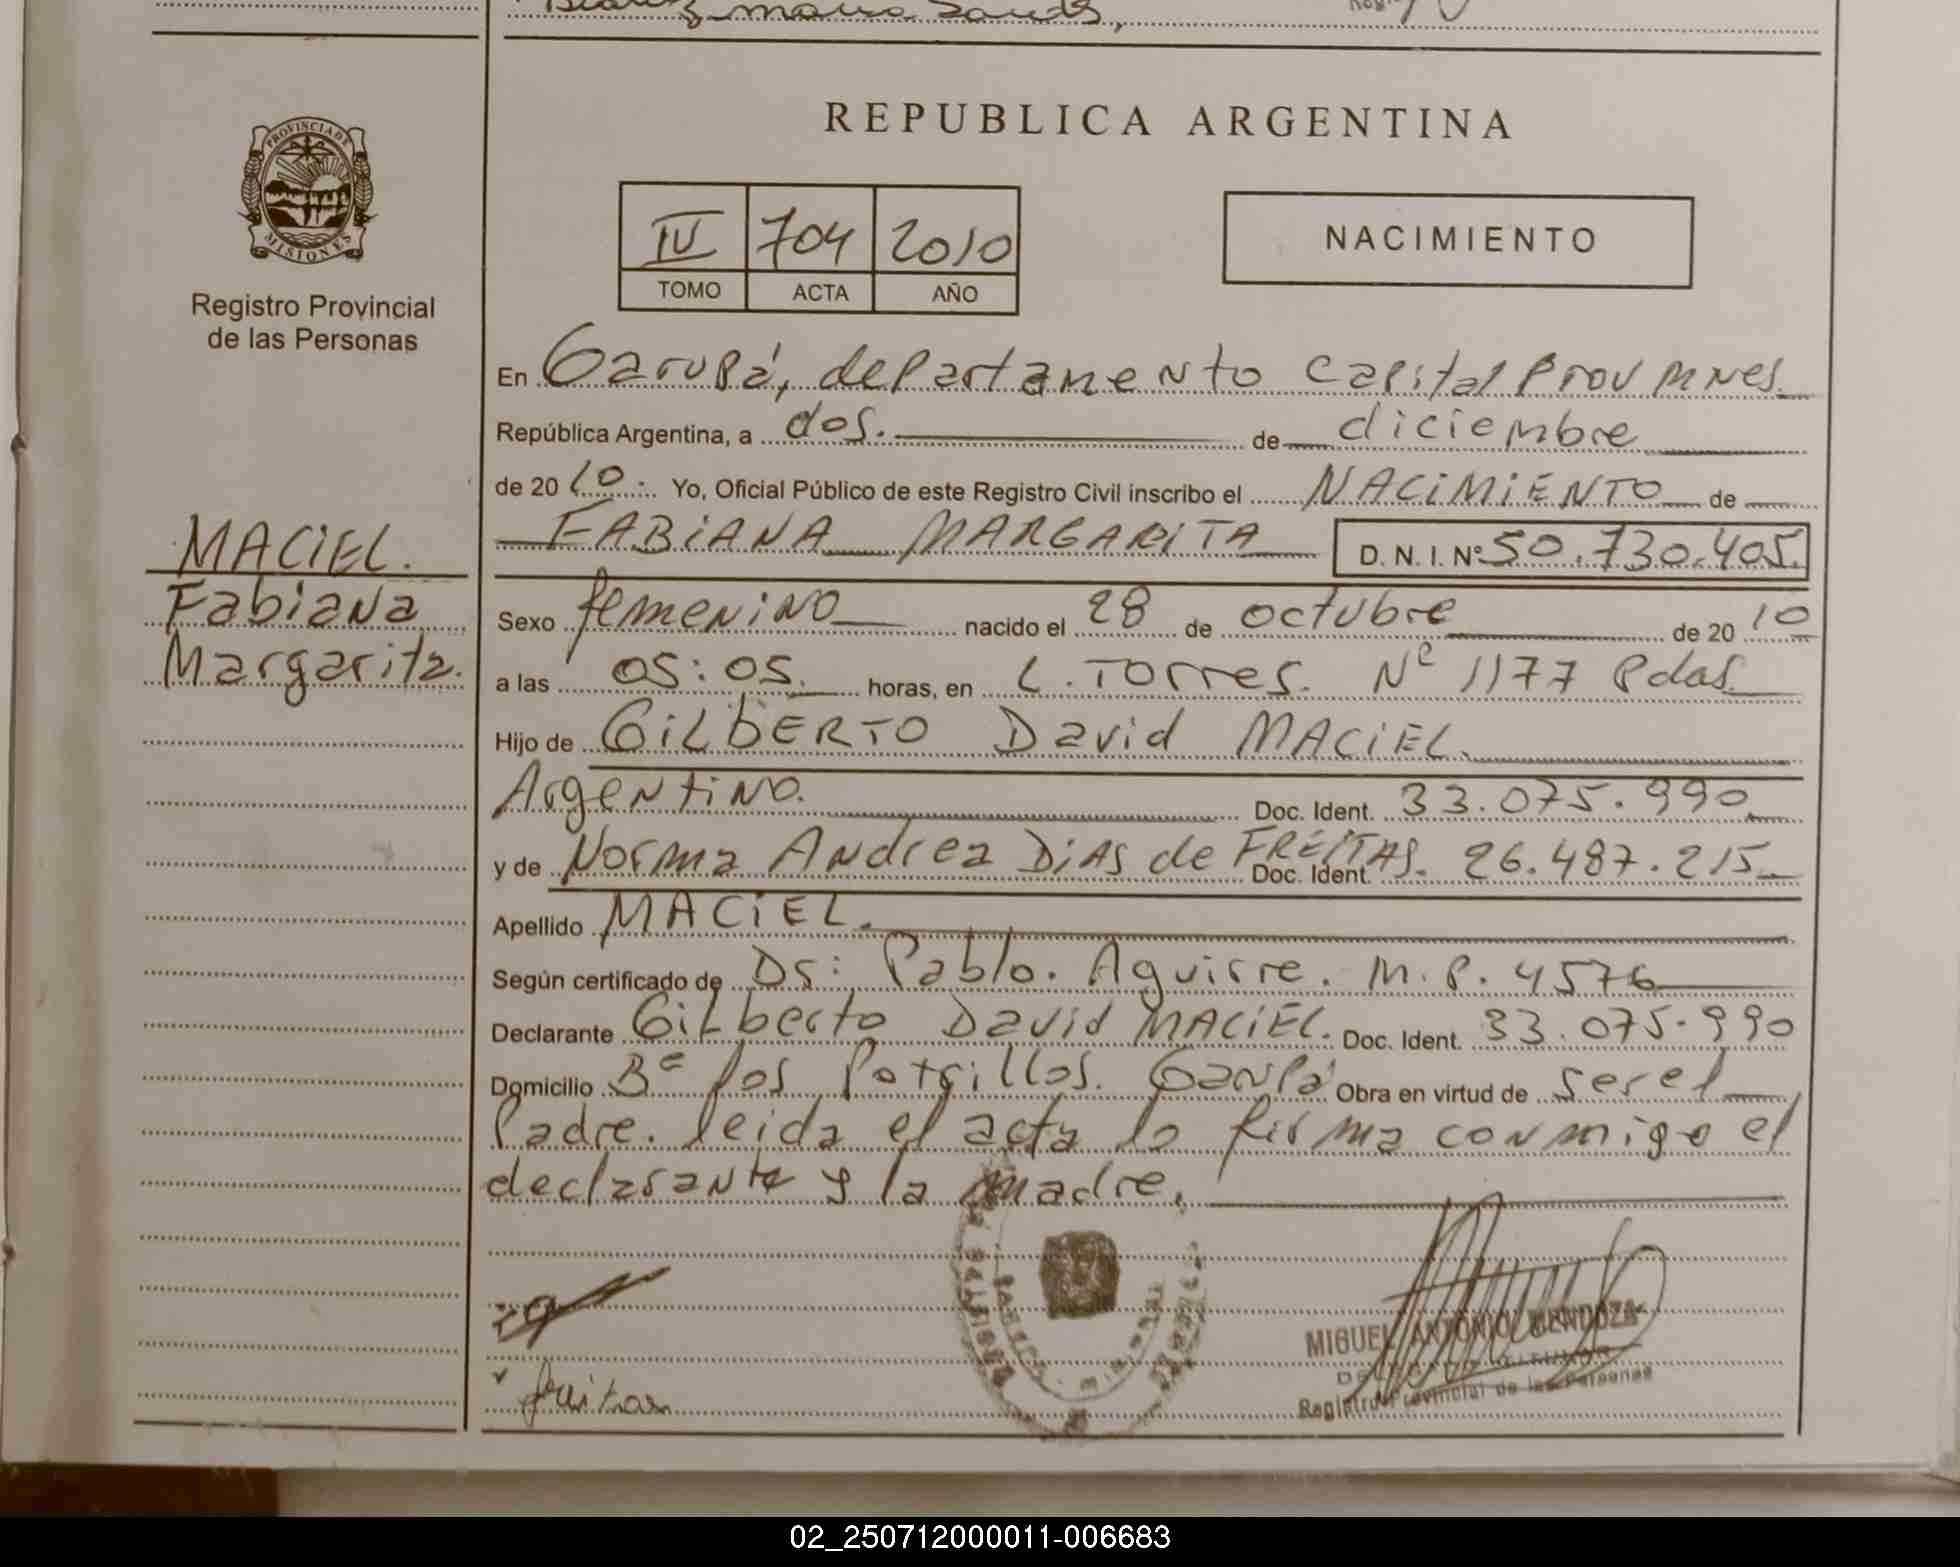 REPUBLICA ARGENTINA
PROVINCIA DE
MISIONES
Registro Provincial
de las Personas
IV 704 2010
TOMO ACTA AÑO
NACIMIENTO
MACIEL.
Fabiana
Margarita.
En Garupá, departamento Capital Prov Mnes.
República Argentina, a dos. de diciembre
de 20 10. Yo, Oficial Público de este Registro Civil inscribo el NACIMIENTO de
FABIANA MARGARITA D. N. I. Nº 50.730.405.
Sexo femenino nacido el 28 de octubre de 20 10
a las 05:05. horas, en L. Torres. Nº 1177 Pdas.
Hijo de GILBERTO David MACIEL.
Argentino. Doc. Ident. 33.075.990
y de Norma Andrea Dias de FREITAS. Doc. Ident. 26.487.215
Apellido MACIEL.
Según certificado de Dr: Pablo. Aguirre. M.P. 4576
Declarante Gilberto David MACIEL. Doc. Ident. 33.075.990
Domicilio Bº los Potrillos. Garupá Obra en virtud de ser el
Padre. leida el acta la firma conmigo el
declarante y la madre.
MIGUEL ANTONIO MENDOZA
Registro Provincial de las Personas
02_250712000011-006683